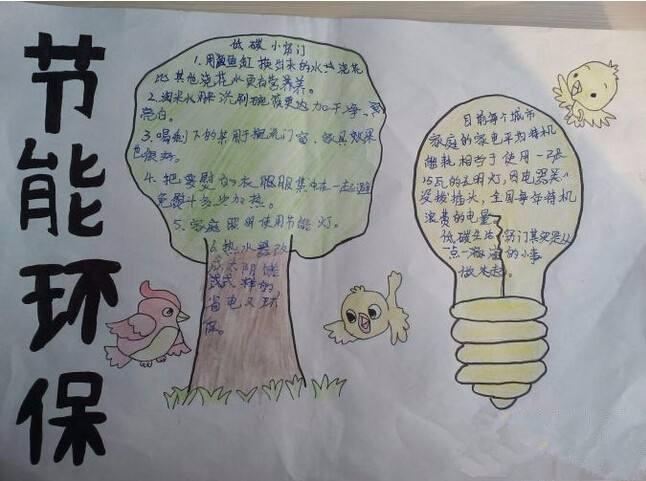 节能环保
低碳小窍门
1.用鱼缸换出来的水浇花
比其他浇花水更有营养。
2.淘米水用来洗刷碗筷更加干净、
亮白。
3.喝剩下的茶用于擦洗门窗、家具效果
也很好。
4.把要熨的衣服集中在一起避
免熨斗多次加热。
5.家庭照明使用节能灯。
6.热水器改
成太阳能
式样的
省电又环
保。
目前每个城市
家庭的家电平均待机
能耗相当于使用一盏
15瓦的长明灯,因电器关
没拔插头,全国每年待机
浪费的电量。
低碳生活窍门其实是从
一点一滴的小事
做起。